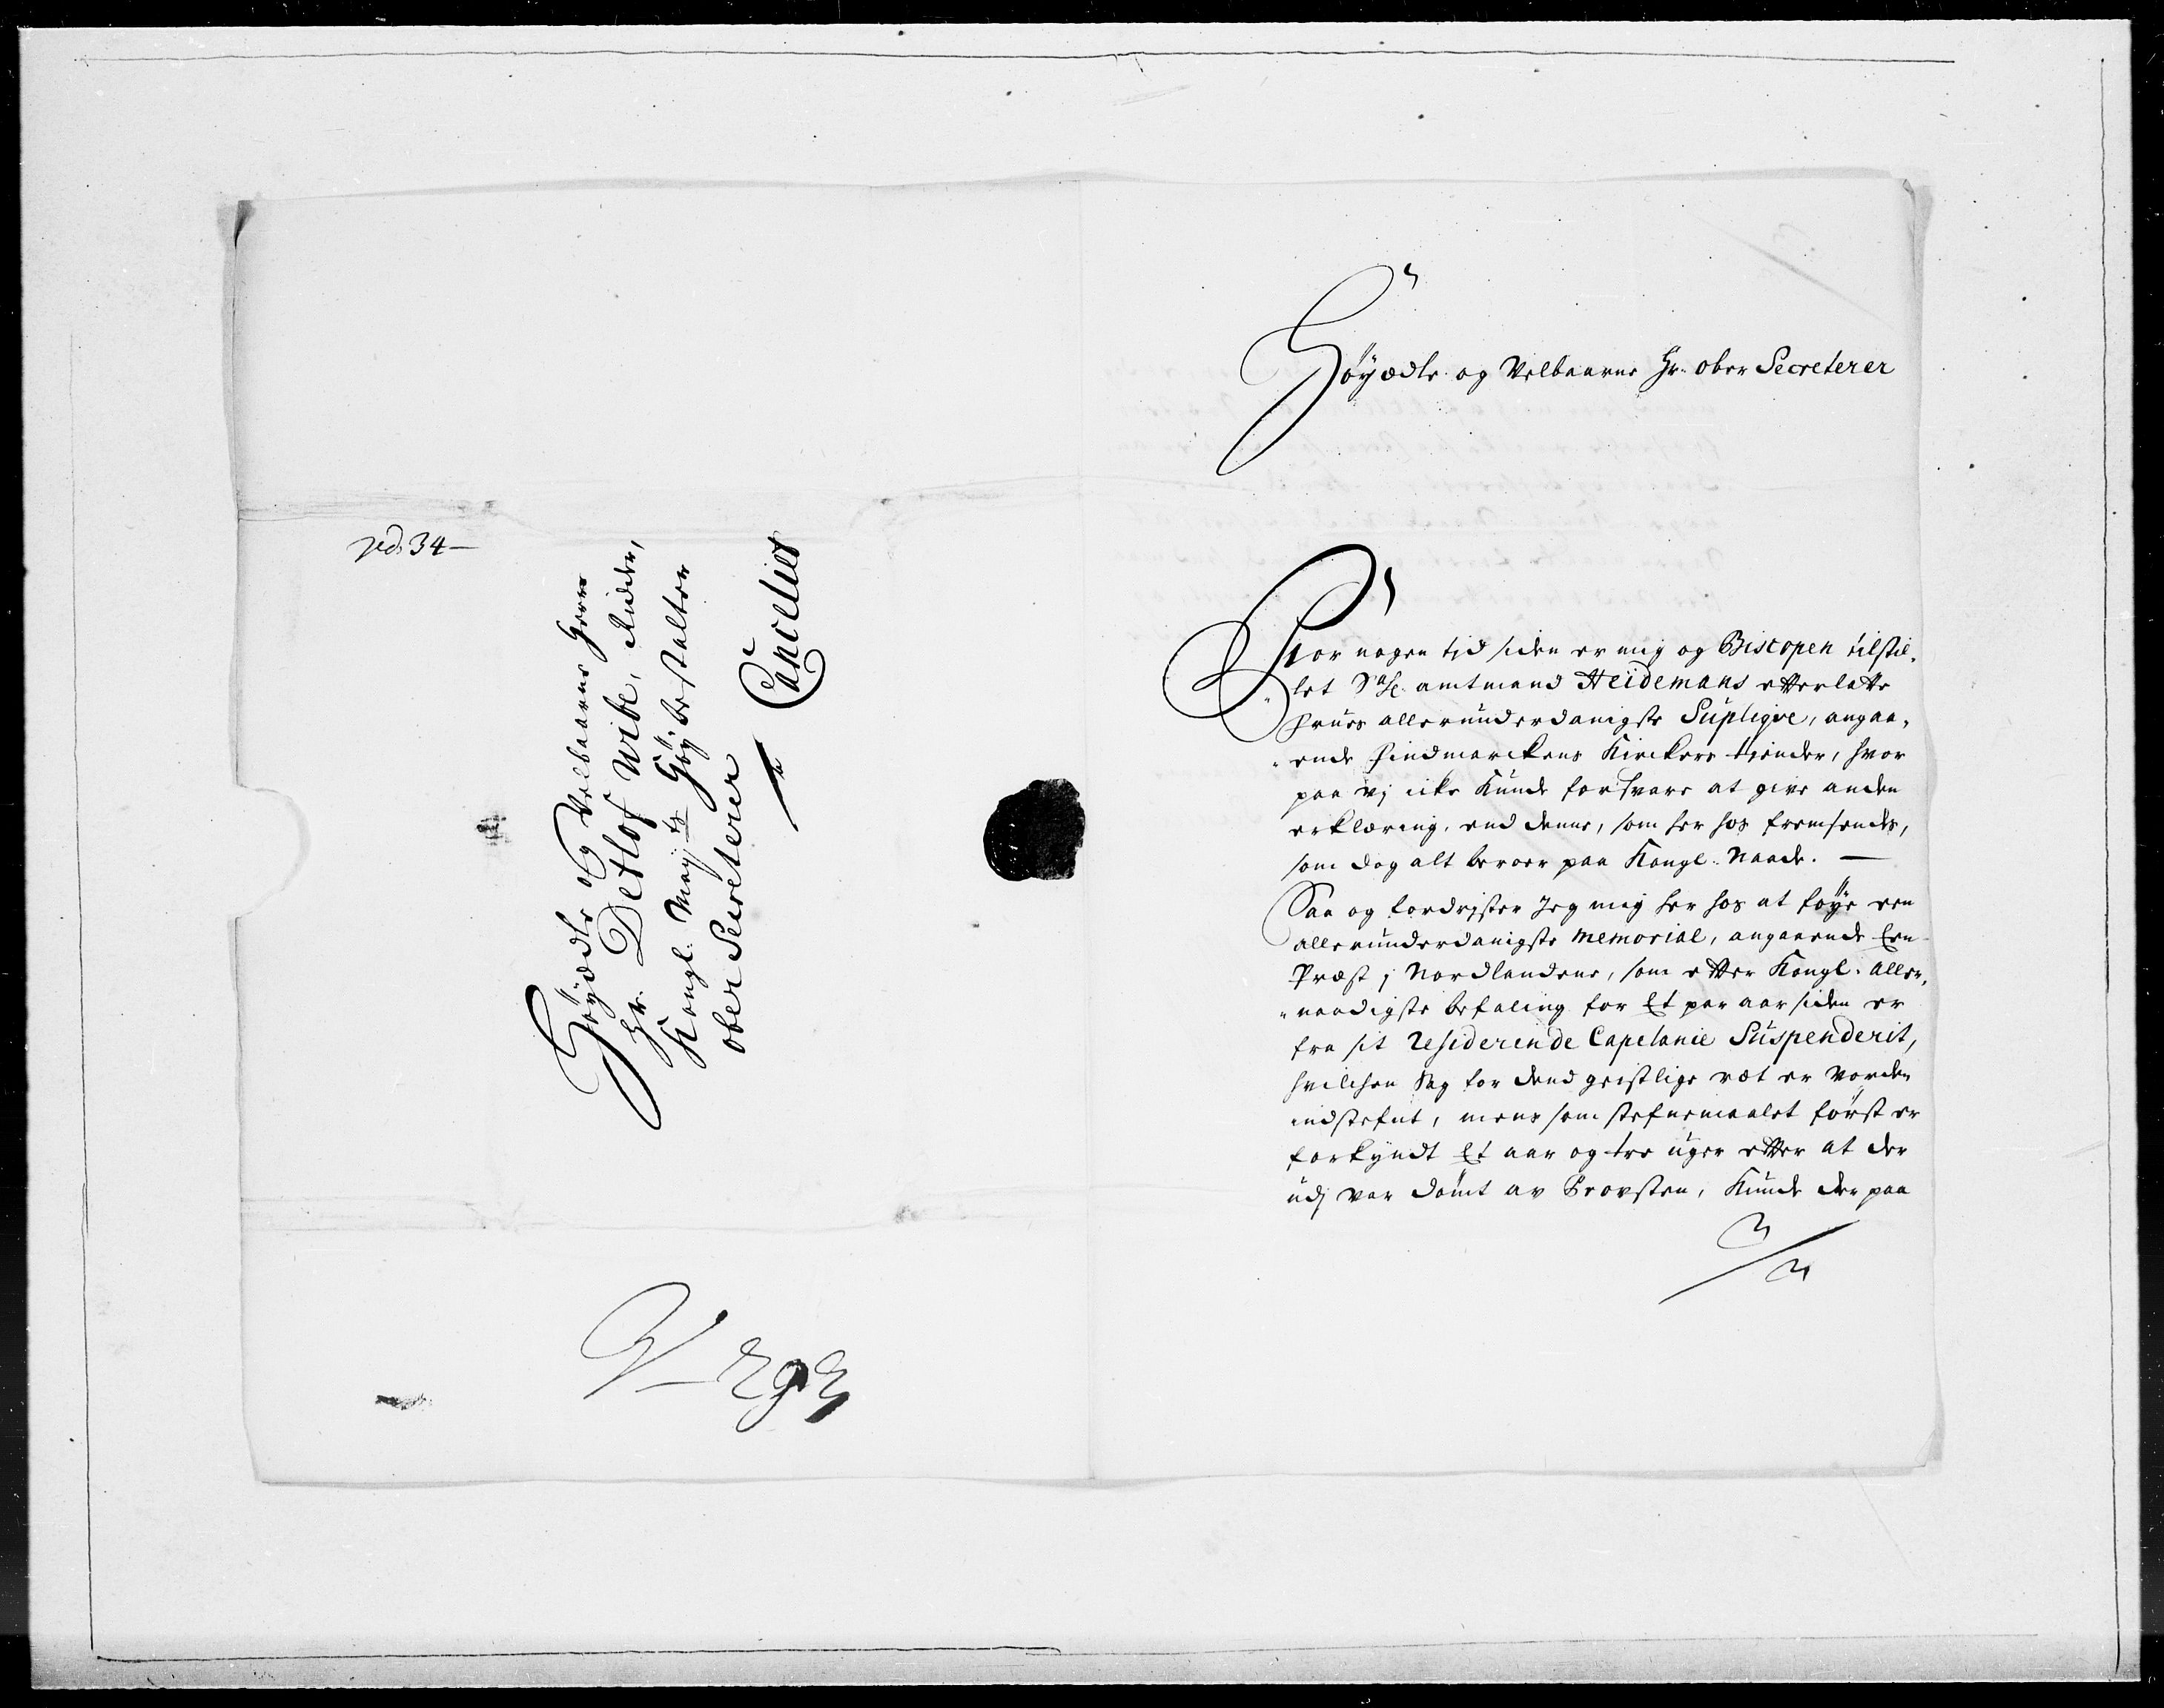 No 34 —
Höyædle og Velbaarne Herre
Hr. Detlof Wibe, Ridder,
Kongl. Mayts Høybestalter
ober Secreterer
Cancelliet
Höyædle og Velbaarne Hr. ober Secreterer
For nogen tid siden er mig og Biscopen tilstil-
let Sal. amtmand Heidemans efterlatte
Frues allerunderdanigste Supliqve, angaa-
ende Findmarckens Kirckers tiender, hvor
paa vj icke kunde forsvare at give anden
erklæring, end denne, som her hos fremsendes,
som dog alt beroer paa Kongl. Naade. —
Saa og fordrister Jeg mig her hos at föye een
allerunderdanigste Memorial, angaaende Een
Præst j Nordlandene, som efter Kongl. Aller-
naadigste befaling for Et par aar siden er
fra sit Residerende Capelanie Suspenderit,
hvilchen Sag for dend geistlige ræt er vorden
indstefnt, mens som stefnemaalet först er
forkyndt Et aar og tre uger efter at der
udj var dömt av Provsten, Kunde der paa